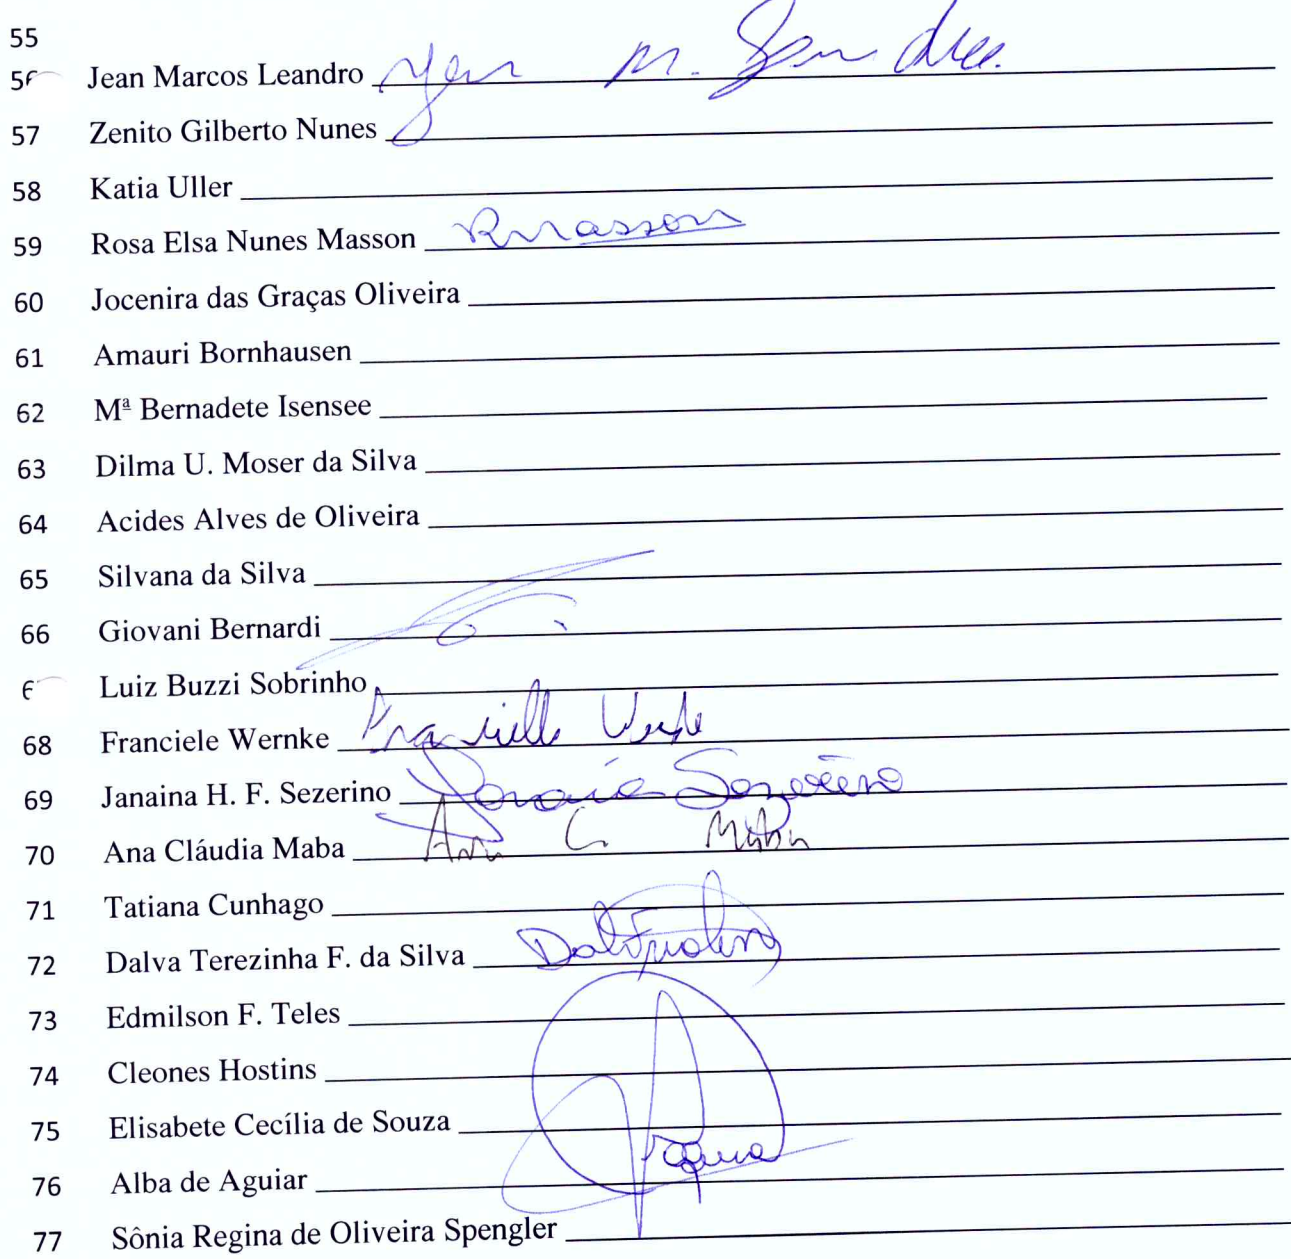 55
56 Jean Marcos Leandro Jean M. Leandro
57 Zenito Gilberto Nunes
58 Katia Uller
59 Rosa Elsa Nunes Masson RMasson
60 Jocenira das Graças Oliveira
61 Amauri Bornhausen
62 Mª Bernadete Isensee
63 Dilma U. Moser da Silva
64 Acides Alves de Oliveira
65 Silvana da Silva
66 Giovani Bernardi
6 Luiz Buzzi Sobrinho
68 Franciele Wernke Francielle
69 Janaina H. F. Sezerino Sezerino
70 Ana Cláudia Maba Ana C. Maba
71 Tatiana Cunhago
72 Dalva Terezinha F. da Silva
73 Edmilson F. Teles
74 Cleones Hostins
75 Elisabete Cecília de Souza
76 Alba de Aguiar
77 Sônia Regina de Oliveira Spengler